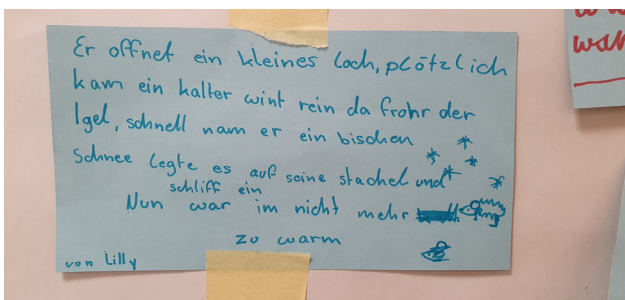 Er offnet ein kleines Loch, plötzlich
kam ein kalter wint rein da frohr der
Igel, schnell nam er ein bischen
Schnee legte es auf seine stachel und
schliff ein
Nun war im nicht mehr
zu warm
von Lilly